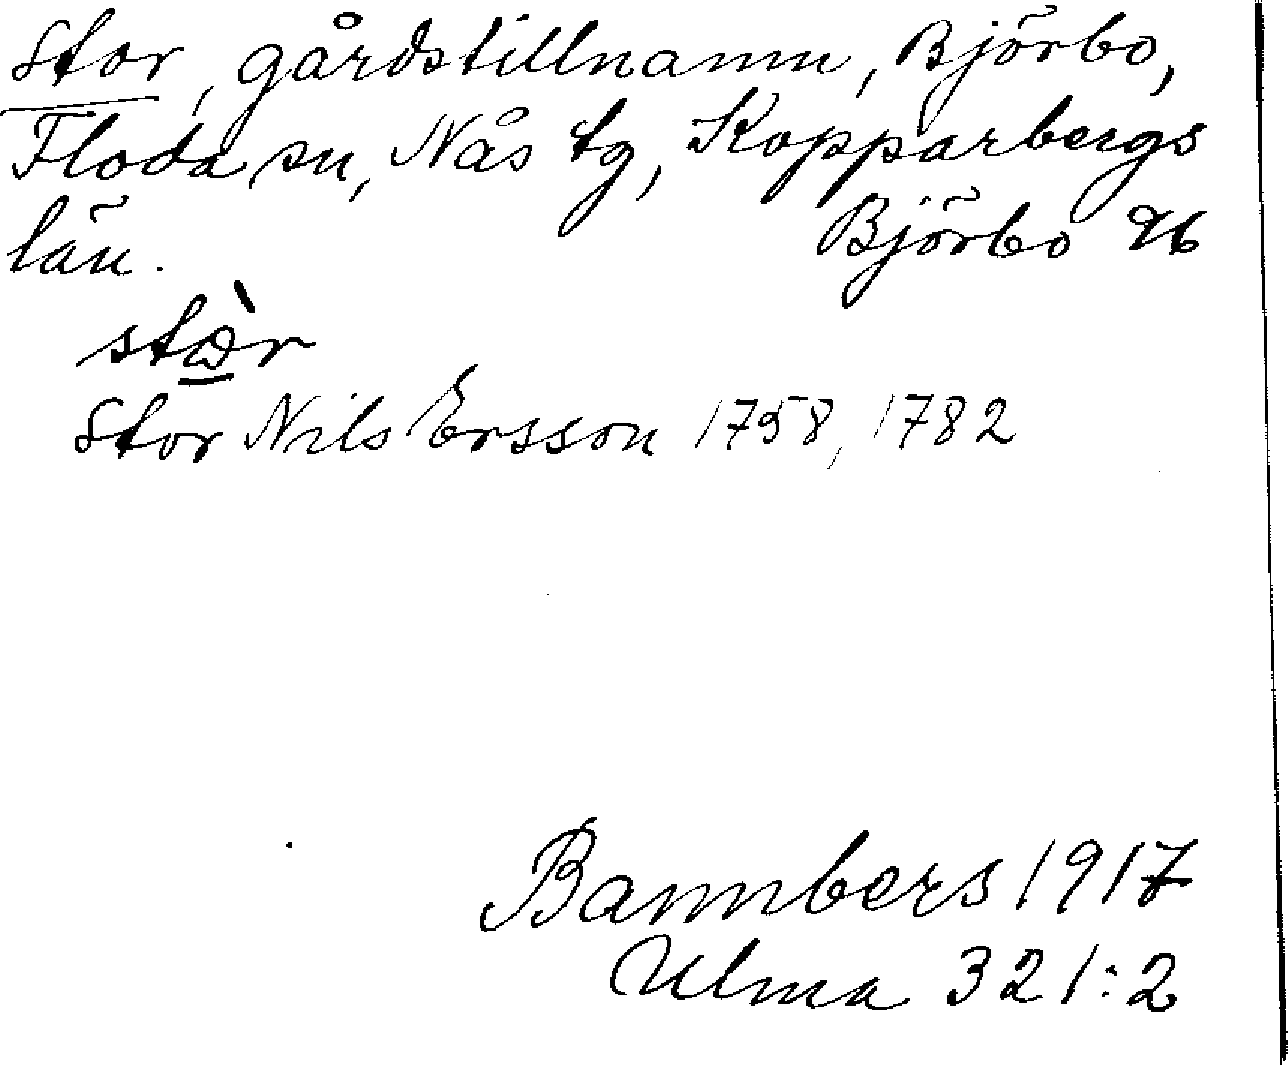 Stor, gårdstillnamn, Björbo,
Floda sn, Nås tg, Kopparbergs
län. Björbo 26
stòr
Stor Nils Ersson 1758, 1782
Bannbers 1917
Ulma 321:2